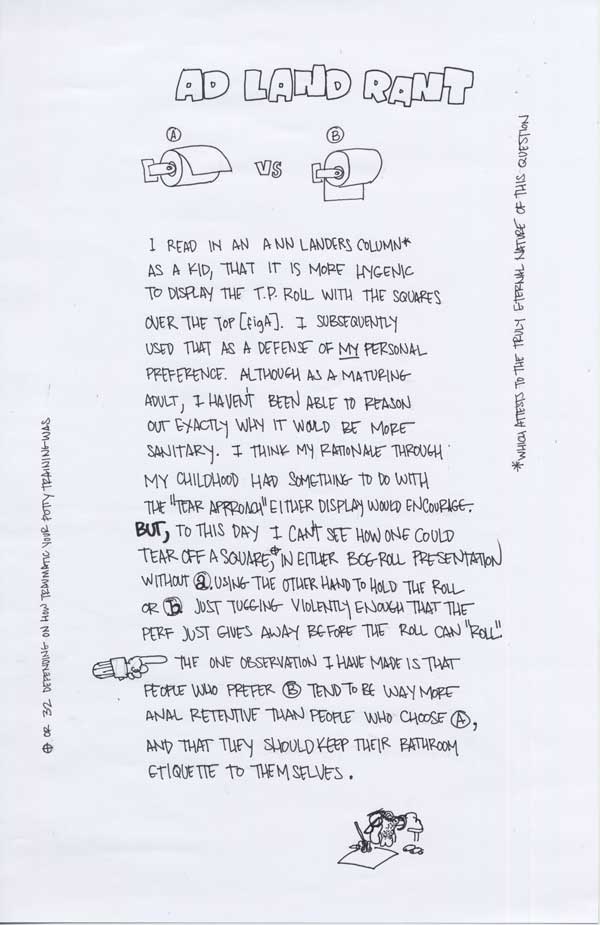 AD LAND RANT
A
VS
B
I READ IN AN ANN LANDERS COLUMN*
AS A KID, THAT IT IS MORE HYGENIC
TO DISPLAY THE T.P. ROLL WITH THE SQUARES
OVER THE TOP [figA]. I SUBSEQUENTLY
USED THAT AS A DEFENSE OF MY PERSONAL
PREFERENCE. ALTHOUGH AS A MATURING
ADULT, I HAVEN'T BEEN ABLE TO REASON
OUT EXACTLY WHY IT WOULD BE MORE
SANITARY. I THINK MY RATIONALE THROUGH
MY CHILDHOOD HAD SOMETHING TO DO WITH
THE "TEAR APPROACH" EITHER DISPLAY WOULD ENCOURAGE.
BUT, TO THIS DAY I CAN'T SEE HOW ONE COULD
TEAR OFF A SQUARE,⊕ IN EITHER BOG-ROLL PRESENTATION
WITHOUT a. USING THE OTHER HAND TO HOLD THE ROLL
OR b. JUST TUGGING VIOLENTLY ENOUGH THAT THE
PERF JUST GIVES AWAY BEFORE THE ROLL CAN "ROLL".
THE ONE OBSERVATION I HAVE MADE IS THAT
PEOPLE WHO PREFER B TEND TO BE WAY MORE
ANAL RETENTIVE THAN PEOPLE WHO CHOOSE A,
AND THAT THEY SHOULD KEEP THEIR BATHROOM
ETIQUETTE TO THEMSELVES.
*WHICH ATTESTS TO THE TRULY ETERNAL NATURE OF THIS QUESTION
⊕ OR 32 DEPENDING ON HOW TRAUMATIC YOUR POTTY TRAINING WAS